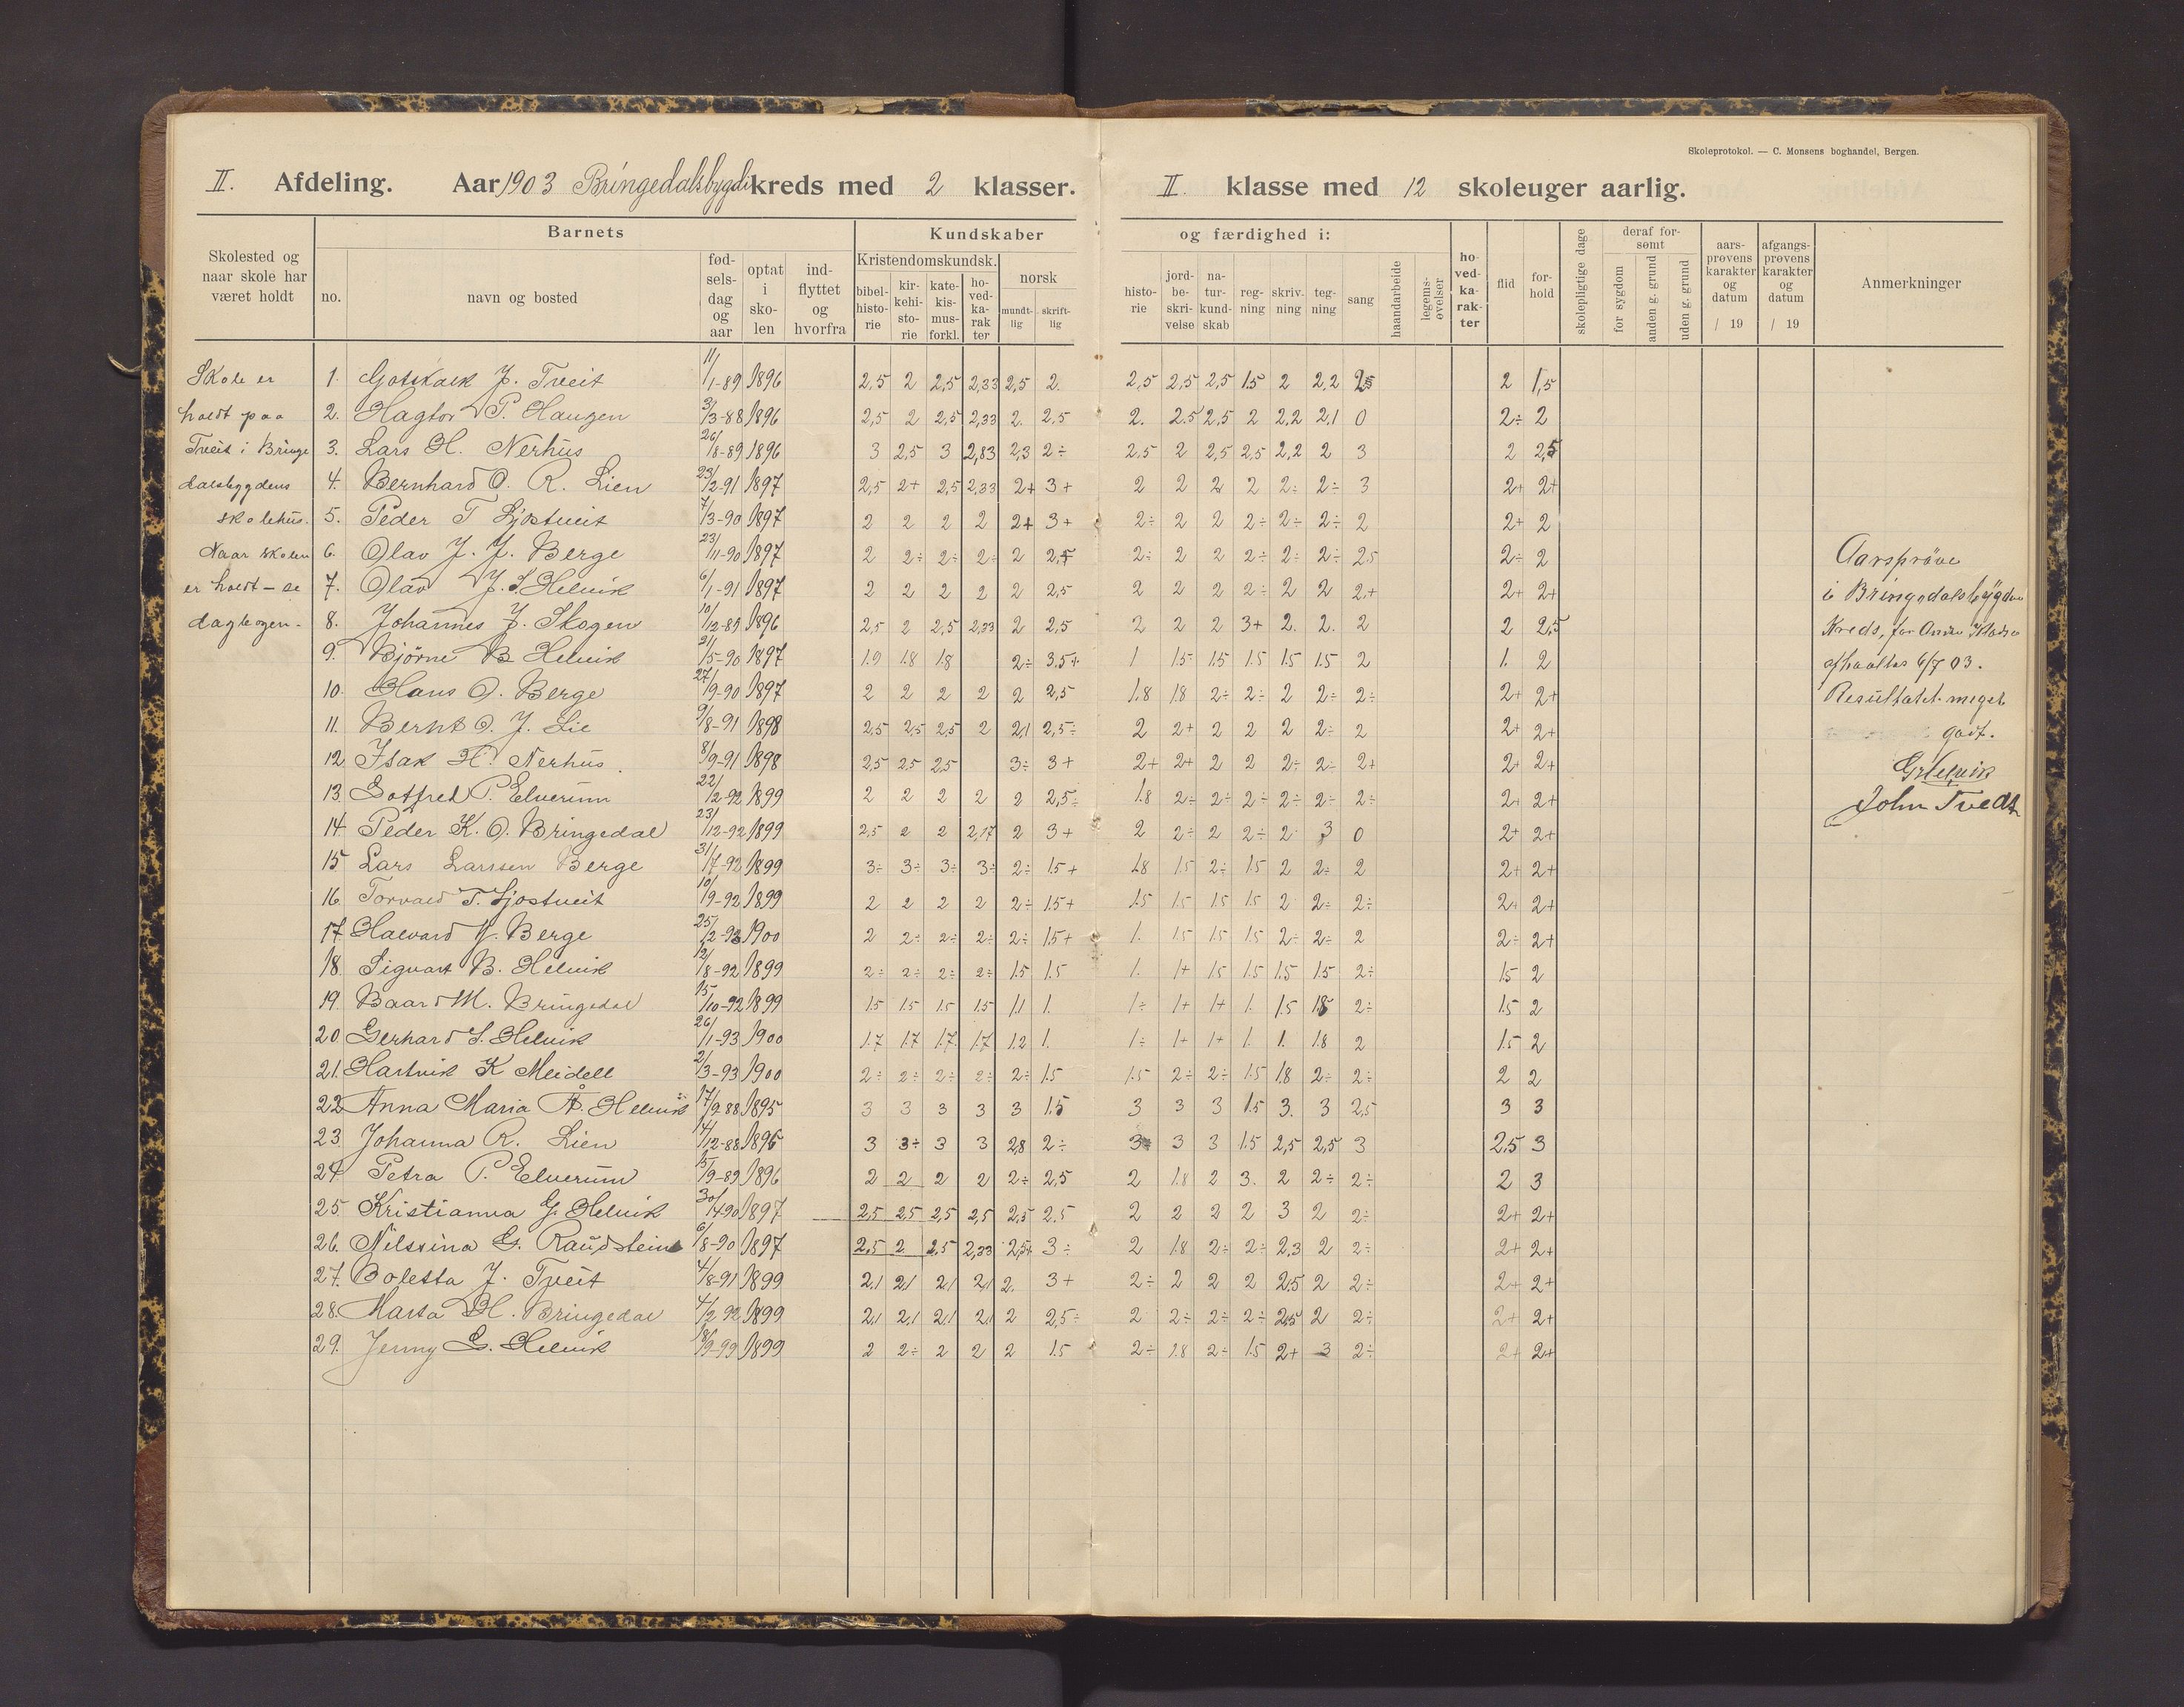 Skoleprotokol. — C. Monsens boghandel, Bergen.
II. Afdeling. Aar 1903 Bringedalsbygd kreds med 2 klasser. II. klasse med 12 skoleuger aarlig.
Skolested og naar skole har været holdt
Barnets
no. navn og bosted fødselsdag og aar optat i skolen indflyttet og hvorfra
Kundskaber og færdighed i:
Kristendomskundsk. bibelhistorie kirkehistorie katekismusforkl. hovedkarakter norsk mundtlig skriftlig
historie jordbeskrivelse naturkundskab regning skrivning tegning sang haandarbeide legemsøvelser hovedkarakter flid forhold skolepligtige dage
deraf forsømt for sygdom anden g. grund uden g. grund
aarsprøvens karakter og datum / 19 afgangsprøvens karakter og datum / 19 Anmerkninger
Skole er
holdt paa
Tveit i Bringe
dalsbygdens
skolehus.
Naar skolen
er holdt – se
dagbogen.
1. Gotskalk J. Tveit 11/1-89 1896 2,5 2 2,5 2,33 2,5 2. 2,5 2,5 2,5 1.5 2 2,2 2,5 2 1,5
2. Hagtor P. Haugen 3/3-88 1896 2,5 2 2,5 2,33 2. 2,5 2. 2.5 2,5 2 2,2 2,1 0 2÷ 2
3. Lars H. Nerhus 26/8-89 1896 3 2,5 3 2,83 2,3 2÷ 2,5 2 2,5 2,5 2,2 2 3 2 2,5
4. Bernhard O. R. Lien 23/2-91 1897 2,5 2+ 2,5 2,33 2+ 3+ 2 2 2 2 2÷ 2÷ 3 2+ 2+
5. Peder T Ljostveit 7/3-90 1897 2 2 2 2 2+ 3+ 2÷ 2 2 2÷ 2÷ 2÷ 2 2+ 2
6. Olav J. J. Berge 23/11-90 1897 2 2÷ 2÷ 2÷ 2 2,5 2÷ 2 2 2÷ 2÷ 2÷ 2.5 2÷ 2
7. Olav J. S. Helvik 6/1-91 1897 2 2 2 2 2 2,5 2 2 2 2÷ 2 2 2+ 2+ 2+
8. Johannes J. Skogen 10/12-89 1896 2,5 2 2,5 2,33 2 2,5 2 2 2 3+ 2. 2. 2 2 2,5
9. Bjørne B Helvik 21/5-90 1897 1.9 1.8 1.8 2÷ 3.5+ 1 1.5 1.5 1.5 1.5 1.5 2 1. 2
10. Hans O. Berge 27/9-90 1897 2 2 2 2 2 2,5 1.8 1.8 2÷ 2÷ 2 2÷ 2÷ 2+ 2+
11. Bernt O. J. Lie 9/8-91 1898 2,5 2,5 2,5 2 2,1 2,5÷ 2 2+ 2 2 2 2÷ 2 2+ 2+
12. Isak H. Nerhus. 8/9-91 1898 2,5 2,5 2,5 3÷ 3+ 2+ 2+ 2 2 2÷ 2÷ 2+ 2+ 2+
13. Gotfred P. Elverum 22/2-92 1899 2 2 2 2 2 2,5÷ 1.8 2÷ 2÷ 2÷ 2÷ 2÷ 2÷ 2+ 2+
14. Peder K. O. Bringedal 23/12-92 1899 2,5 2 2 2,17 2 3+ 2 2÷ 2 2÷ 2 3 0 2+ 2+
15 Lars Larssen Berge 31/7-92 1899 3÷ 3÷ 3÷ 3÷ 2÷ 1.5+ 1.8 1.5 2÷ 1.5 2 2÷ 2 2+ 2+
16. Torvald T. Ljostveit 10/9-92 1899 2 2 2 2 2÷ 1.5+ 1.5 1.5 1.5 1.5 2 2÷ 2÷ 2+ 2+
17. Halvard J. Berge 25/2-93 1900 2 2÷ 2÷ 2÷ 2÷ 1.5+ 1. 1.5 1.5 1.5 2÷ 2÷ 2 2÷ 2+
18. Sigvart B. Helvik 12/8-92 1899 2÷ 2÷ 2÷ 2÷ 1.5 1.5 1. 1+ 1.5 1.5 1.5 1.5 2÷ 1.5 2
19. Baard M. Bringedal 15/10-92 1899 1.5 1.5 1.5 1.5 1,1 1. 1÷ 1+ 1+ 1. 1.5 1.8 2÷ 1.5 2
20. Gerhard S. Helvik 26/1-93 1900 1.7 1.7 1.7 1.7 1.2 1. 1÷ 1+ 1+ 1. 1. 1.8 2 1.5 2
21. Hartvik K Meidell 2/3-93 1900 2÷ 2÷ 2÷ 2÷ 2÷ 1.5 1.5 2÷ 2÷ 1.5 1.8 2÷ 2÷ 2 2
22. Anna Maria Å. Helvik 17/9-88 1895 3 3 3 3 3 1.5 3 3 3 1.5 3. 3 2,5 3 3
23. Johanna R. Lien 14/12-88 1896 3 3÷ 3 3 2,8 2÷ 3 3 3 1.5 2,5 2,5 3 2.5 3
24. Petra P. Elverum 15/9-89 1896 2 2 2 2 2÷ 2,5 2 1.8 2 3. 2 2÷ 2÷ 2 3
25. Kristianna G. Helvik 30/1490 1897 2,5 2,5 2,5 2,5 2,5 2.5 2 2 2 2 3 2 2÷ 2+ 2+
26. Nilsina G. Raudstein 6/8-90 1897 2,5 2. 2.5 2,33 2,5+ 3÷ 2 1.8 2÷ 2÷ 2,3 2 2÷ 2+ 2+
27. Boletta J. Tveit 4/8-91 1899 2,1 2,1 2,1 2,1 2. 3+ 2÷ 2 2 2 2,5 2 2÷ 2+ 2+
28. Marta H. Bringedal 4/2 92 1899 2,1 2,1 2,1 2,1 2 2,5÷ 2 2÷ 2÷ 2÷ 2,5 2 2÷ 2+ 2+
29. Jenny G. Helvik 18/9-99 1899 2 2÷ 2 2 2 1.5 2÷ 1.8 2÷ 1.5 2+ 3 2÷ 2+ 2+
Aarsprøve
i Bringedalsbygden
Kreds, for Anden Klasse
afhaaltes 6/7 03.
Resultatet meget
godt.
GHelvik
John Tvedt